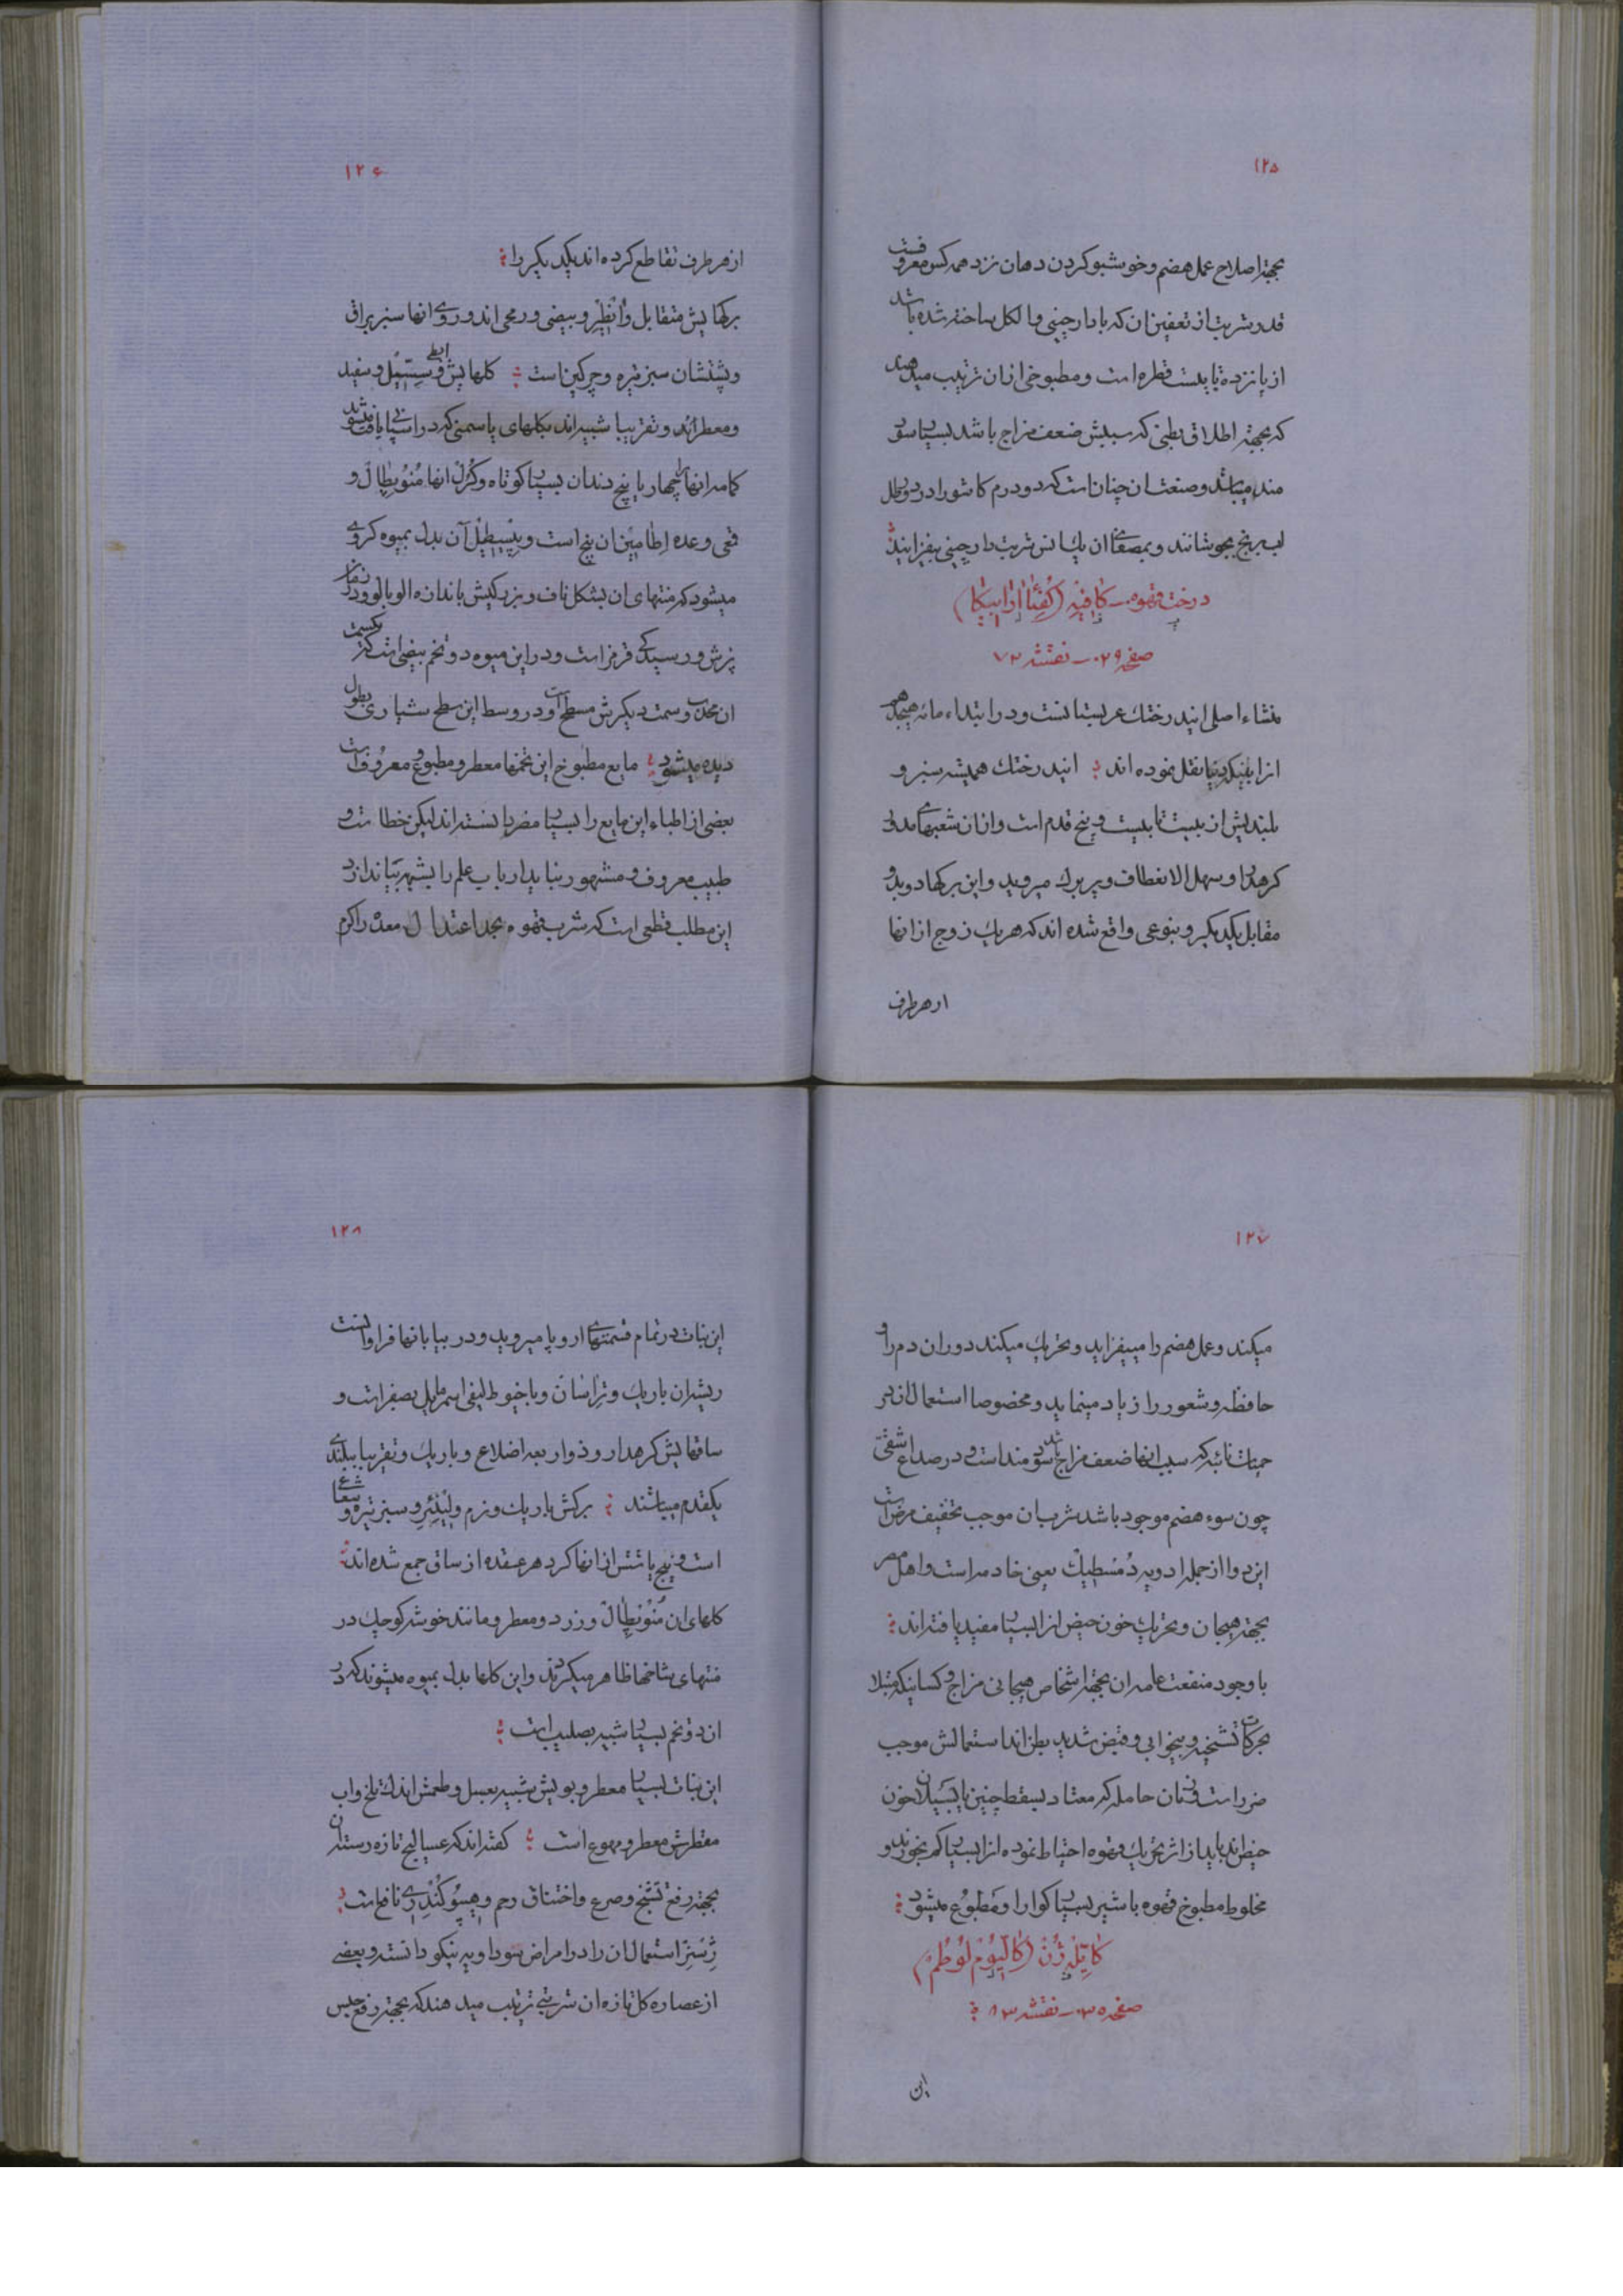 ۱۲۵
بجهة اصلاح عمل هضم و خوشبو کردن دهان نزد همه کس معروفست
قدر شربت از تعفین ان که با دارچینی و الکل ساخته شده باشد
از پانزده تا بیست قطره است و مطبوخی ازان ترتیب میدهند
که بجهة اطلاق بطنی که سببش ضعف مزاج باشد بسیار سود
مند میباشد و صنعت ان چنان است که دو درم کاشو را در دو رطل
اب برنج بجوشانند و بمصفای ان یک انس شربت دارچینی بیفزایند
درخت قهوه ـ کافیه (کفئا ارابیکا)
صفحه ۰۲۹ ـ نقشه ۷۲
منشاء اصلی ایندرختک عربستانست و در ابتداء مائه هیجدهم
انرا بینکی دنیا نقل نموده اند ایندرختک همیشه سبز و
بلندیش از بیست تا بیست و پنج قدم است و ازان شعبهای مدور
کرهدار و سهل الانعطاف و پر برک میروید و این برکها دو بدو
مقابل یکدیکر و بنوعی واقع شده اند که هر یک زوج از انها
از هر طرف
۱۲۶
از هر طرف تقاطع کرده اند یکدیکر را
برکهایش متقابل و انطیر و بیضی و رمحی اند و روی انها سبز براق
و پشتشان سبز تیره و چرکین است کلهایش ابطی و سسیل و سفید
و معطرند و تقریبا شبیه اند بکلهای یاسمنی که در اسپانیا یافت میشود
کاسه انها چهار یا پنج دندان بسیار کوتاه و کرل انها منوبطال و
قمعی و عده اطامین ان پنج است و پیسطیل آن بدل بمیوه کروی
میشود که منتهای ان بشکل ناف و بزرکیش باندازه الوبالو و در
نرش و رسیدکی قرمز است و در این میوه دو تخم بیضی است که یکسمت
ان محدب و سمت دیکرش مسطح است و در وسط این سطح شیاری بطول
دیده میشود مایع مطبوخ این تخمها معطر و مطبوع و معروفست
بعضی از اطباء این مایع را بسیار مضر دانسته اند لیکن خطاست و
طبیب معروف و مشهور نباید ارباب علم را بشبهه بیاندازد
این مطلب قطعی است که شرب قهوه بحد اعتدال معده را کرم
۱۲۷
میکند و عمل هضم را میفزاید و تحریک میکند دوران دم را و
حافظه و شعور را زیاد مینماید و مخصوصا استعمال ان در
حمیات نائبه که سبب انها ضعف مزاج باشد سودمند است و در صداع شقی
چون سوء هضم موجود باشد شرب ان موجب تخفیف مرض است
این دوا از جمله ادویه دمسطیک یعنی خادمه است و اهل مصر
بجهة هیجان و تحریک خون حیض انرا بسیار مفید یافته اند
با وجود منفعت عامه ان بجهة اشخاص هیجانی مزاج و کسانیکه مبتلا
بحرکات تشنجیه و بیخوابی و قبض شدید بطن اند استعمالش موجب
ضرر است و زنان حامله که معتاد بسقط جنین یا بسیلان خون
حیض اند باید از اثر تحریک قهوه احتیاط نموده انرا بسیار کم بخورند و
مخلوط مطبوخ قهوه با شیر بسیار کوارا و مطبوع میشود
کایله ژن (کالیوم لوطم)
صفحه ۰۳۵ ـ نقشه ۸۳
این
۱۲۸
این نبات در تمام قسمتهای اروپا میروید و در بیابانها فراوانست
ریشه ان باریک و تراسان و با خیوط لیفی اسمر مایل بصفر است و
ساقهایش کرهدار و ذو اربعه اضلاع و باریک و تقریبا ببلندی
یکقدم میباشند برکش باریک و نرم و لینئر و سبز تیره و شعاعی
است و پنج یا شش از انها کرد هر عقده از ساق جمع شده اند
کلهای ان منوبطال و زرد و معطر و مانند خوشه کوچک در
منتهای شاخها ظاهر میکردند و این کلها بدل بمیوه میشوند که در
ان دو تخم بسیار شبیه بصلیب است
این نبات بسیار معطر و بویش شبیه بعسل و طعمش اندک تلخ و اب
مقطرش معطر و مهوع است کفته اند که عسالیج تازه رسته ان
بجهة رفع تشنج و صرع و اختناق رحم و هیپوکندری نافع است
ژسنر استعمال ان را در امراض سوداویه نیکو دانسته و بعضی
از عصاره کل تازه ان شربتی ترتیب میدهند که بجهة رفع حبس